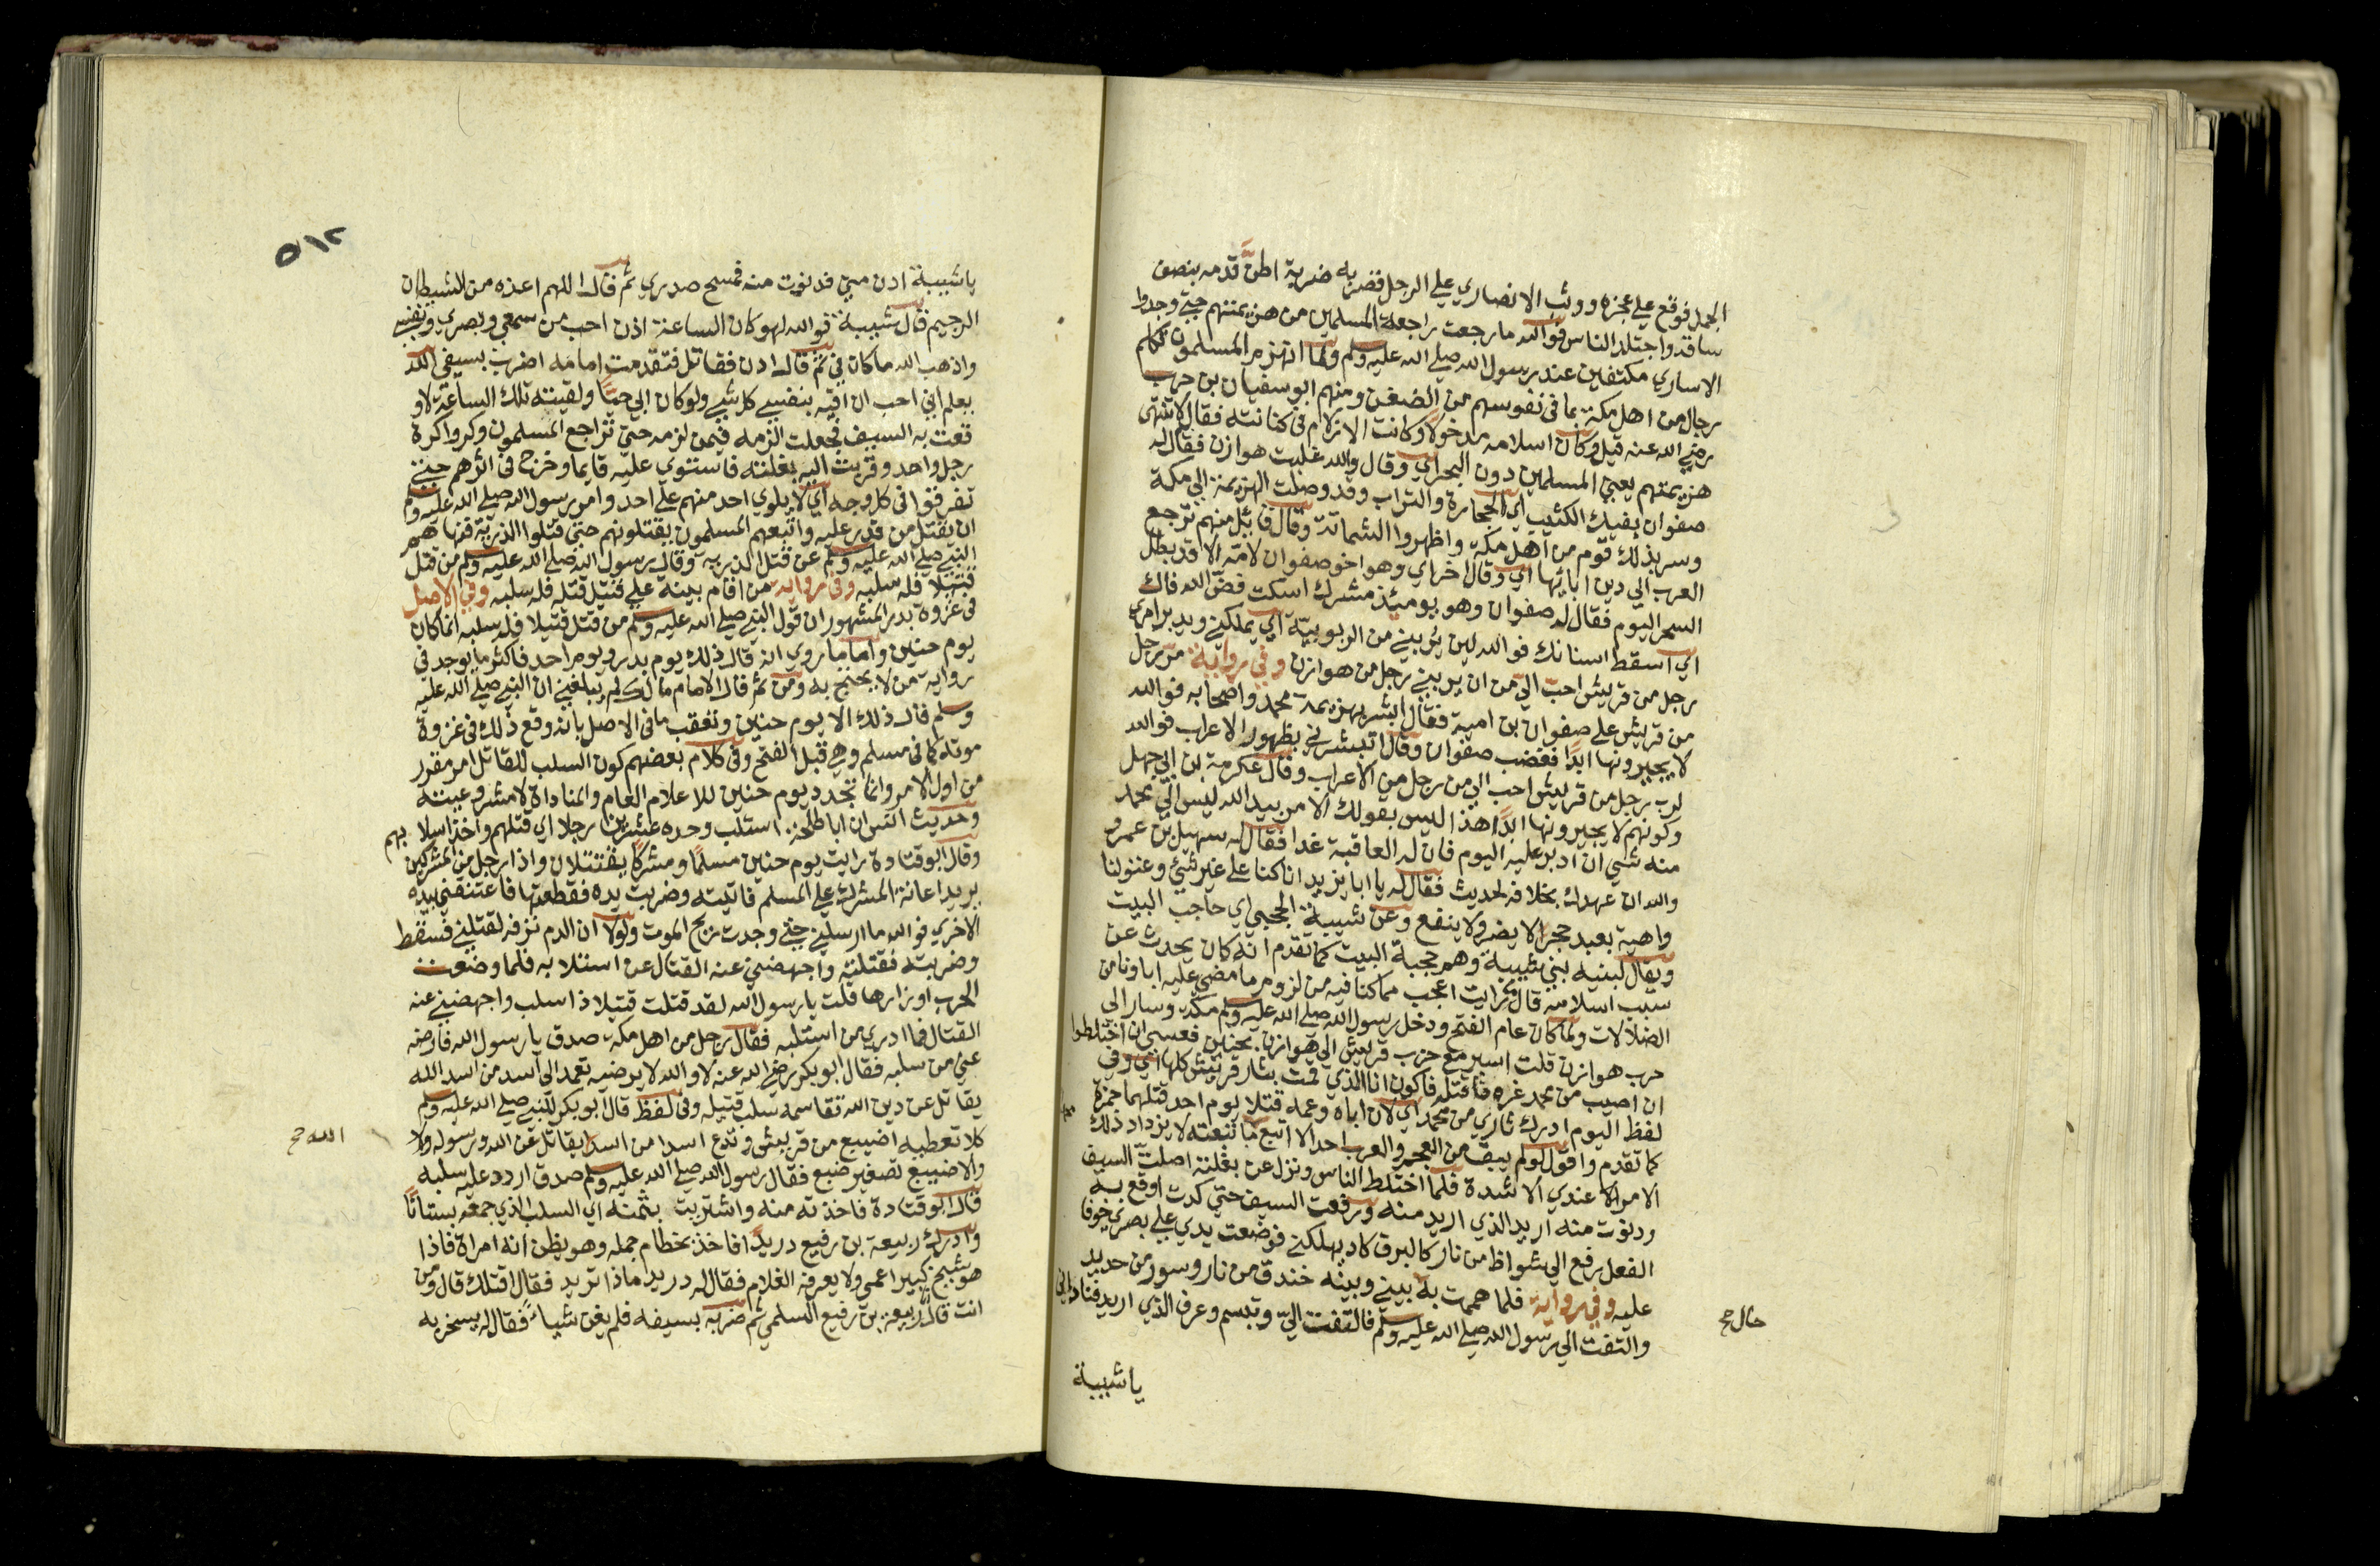 الجمل فوقع على عجزه ووثب الانصاري على الرجل فضربه ضربة اطن قدمه بنصف
ساقه واجتلد الناس فوالله ما رجعت راجعة المسلمين من هزيمتهم حتى وجدوا
الاساري مكتفين عند رسول الله صلى الله عليه وسلم ولما انهزم المسلمون تكلم
رجال من اهل مكة بما في نفوسهم من الضغن ومنهم ابو سفيان بن حرب
رضي الله عنه قيل وكان اسلامه مدخولا وكانت الازلام في كنانته فقال لا تنتهى
هزيمتهم يعني المسلمين دون البحر اي وقال والله غلبت هوازن فقال له
صفوان بفيك الكثيب اي الحجارة والتراب وقد وصلت الهزيمة الى مكة
وسر بذلك قوم من اهل مكة واظهروا الشماتة وقال قائل منهم ترجع
العرب الى دين ابائها اي وقال اخر اي وهو اخو صفوان لامه الا قد بطل
السحر اليوم فقال له صفوان وهو يومئذ مشرك اسكت فض الله فاك
اي اسقط اسنانك فوالله لين يربيني من الربوبية اي يملكني ويدبر امري
رجل من قريش احب الي من ان يربيني رجل من هوازن وفي رواية مر رجل
من قريش على صفوان بن امية فقال ابشر بهزيمة محمد واصحابه فوالله
لا يجبرونها ابدا فغضب صفوان وقال اتبشرني بظهور الاعراب فوالله
لرب رجل من قريش احب الي من رجل من الاعراب وقال عكرمة بن ابي جهل
وكونهم لا يجبرونها ابدا هذا ليس بقولك الامر بيد الله ليس الى محمد
منه شي ان ادبر عليه اليوم فان له العاقبة غدا فقال له سهيل بن عمرو
والله ان عهدك بخلافه لحديث فقال له يا ابا يزيد انا كنا على غير شي وعقولنا
واهية نعبد حجرا لا يضر ولا ينفع وعن شيبة الحجبي اي حاجب البيت
ويقال لبنيه بني شيبة وهم حجبة البيت كما تقدم انه كان يحدث عن
سبب اسلامه قال ما رايت اعجب مما كنا فيه من لزوم ما مضى عليه اباونا من
الضلالات ولما كان عام الفتح ودخل رسول الله صلى الله عليه وسلم مكة وسار الى
حرب هوازن قلت اسير مع حرب قريش الى هوازن بحنين فعسى ان اختلطوا
ان اصيب من محمد غرة فاقتله فاكون انا الذي قمت بثار قريش كلها اي وفي
لفظ اليوم ادرك ثاري من محمد اي لان اباه وعمه قتلا يوم احد قتلهما حمزة
كما تقدم واقول لو لم يبق من العجم والعرب احد الا اتبع ما تبعته لا يزداد ذلك
الامر الا عندي الا شدة فلما اختلط الناس ونزل عن بغلته اصلت السيف
ودنوت منه اريد الذي اريد منه ورفعت السيف حتى كدت اوقع به
الفعل رفع الى شواظ من نار كالبرق كاد يهلكني فوضعت يدي على بصري خوفا
عليه وفي رواية فلما هممت به بيني وبينه خندق من نار وسور من حديد
والتفت الي رسول الله صلى الله عليه وسلم فالتفت الي وتبسم وعرف الذي اريد فناداني
حال صح
يا شيبة
٥١٢
يا شيبة ادن مني فدنوت منه فمسح صدري ثم قال اللهم اعذه من الشيطان
الرجيم قال شيبة فوالله لهو كان الساعة اذن احب من سمعي وبصري ونفسي
واذهب الله ما كان بي ثم قال ادن فقاتل فتقدمت امامه اضرب بسيفي الله
يعلم اني احب ان اقيه بنفسي كل شي ولو كان ابي حيا ولقيته تلك الساعة لاو
قعت به السيف فجعلت الزمه فيمن لزمه حتى تراجع المسلمون وكروا كرة
رجل واحد وقربت اليه بغلته فاستوى عليه قايما وخرج في اثرهم حتى
تفرقوا في كل وجه اي لا يلوي احد منهم على احد وامر رسول الله صلى الله عليه وسلم
ان يقتل من قدر عليه واتبعهم المسلمون يقتلونهم حتى قتلوا الذرية فنهاهم
النبي صلى الله عليه وسلم عن قتل الذرية وقال رسول الله صلى الله عليه وسلم من قتل
قتيلا فله سلبه وفي رواية من اقام بينة على قتيل قتله فله سلبه وفي الاصل
في غزوة بدر المشهور ان قول النبي صلى الله عليه وسلم من قتل قتيلا فله سلبه انما كان
يوم حنين واما ما روي انه قال ذلك يوم بدر ويوم احد فاكثر ما يوجد في
رواية من لا يحتج به ومن ثم قال الامام مالك لم يبلغني ان النبي صلى الله عليه
وسلم قال ذلك الا يوم حنين وتعقب ما في الاصل بانه وقع ذلك في غزوة
موتة كما في مسلم وهي قبل الفتح وفي كلام بعضهم كون السلب للقاتل امر مقرر
من اول الامر وانما تجدد يوم حنين للاعلام العام والمناداة لا مشروعيته
وحديث انس ان ابا طلحة استلب وحده عشرين رجلا اي قتلهم واخذ اسلابهم
وقال ابو قتادة رايت يوم حنين مسلما ومشركا يقتتلان واذا رجل من المشركين
يريد اعانة المشرك على المسلم فاتيته وضربت يده فقطعتها فاعتنقني بيده
الاخرى فوالله ما ارسلني حتى وجدت ريح الموت ولولا ان الدم نزفه لقتلني فسقط
وضربته فقتلته واجهضني عنه القتال عن استلابه فلما وضعت
الحرب اوزارها قلت يا رسول الله لقد قتلت قتيلا ذا سلب واجهضني عنه
القتال فما ادري من استلبه فقال رجل من اهل مكة صدق يا رسول الله فارضه
عني من سلبه فقال ابو بكر رضي الله عنه لا والله لا يرضيه تعمد الى اسد من اسد الله
يقاتل عن دين الله تقاسمه سلب قتيله وفي لفظ قال ابو بكر للنبي صلى الله عليه وسلم
كلا تعطيه اضيبع من قريش وتدع اسدا من اسد يقاتل عن الله ورسوله ولا
الله صح
والاضيبع تصغير ضبع فقال رسول الله صلى الله عليه وسلم صدق اردد عليه سلبه
قال ابو قتادة فاخذته منه واشتريت بثمنه اي السلب الذي جمعه بستانا
وادرك ربيعة بن رفيع دريدا فاخذ بخطام جمله وهو يظن انه امراة فاذا
هو شيخ كبير اعمى ولا يعرفه الغلام فقال له دريد ماذا تريد فقال اقتلك قال ومن
انت قال ربيعة بن رفيع السلمي ثم ضربه بسيفه فلم يغن شيا فقال له يسخر به